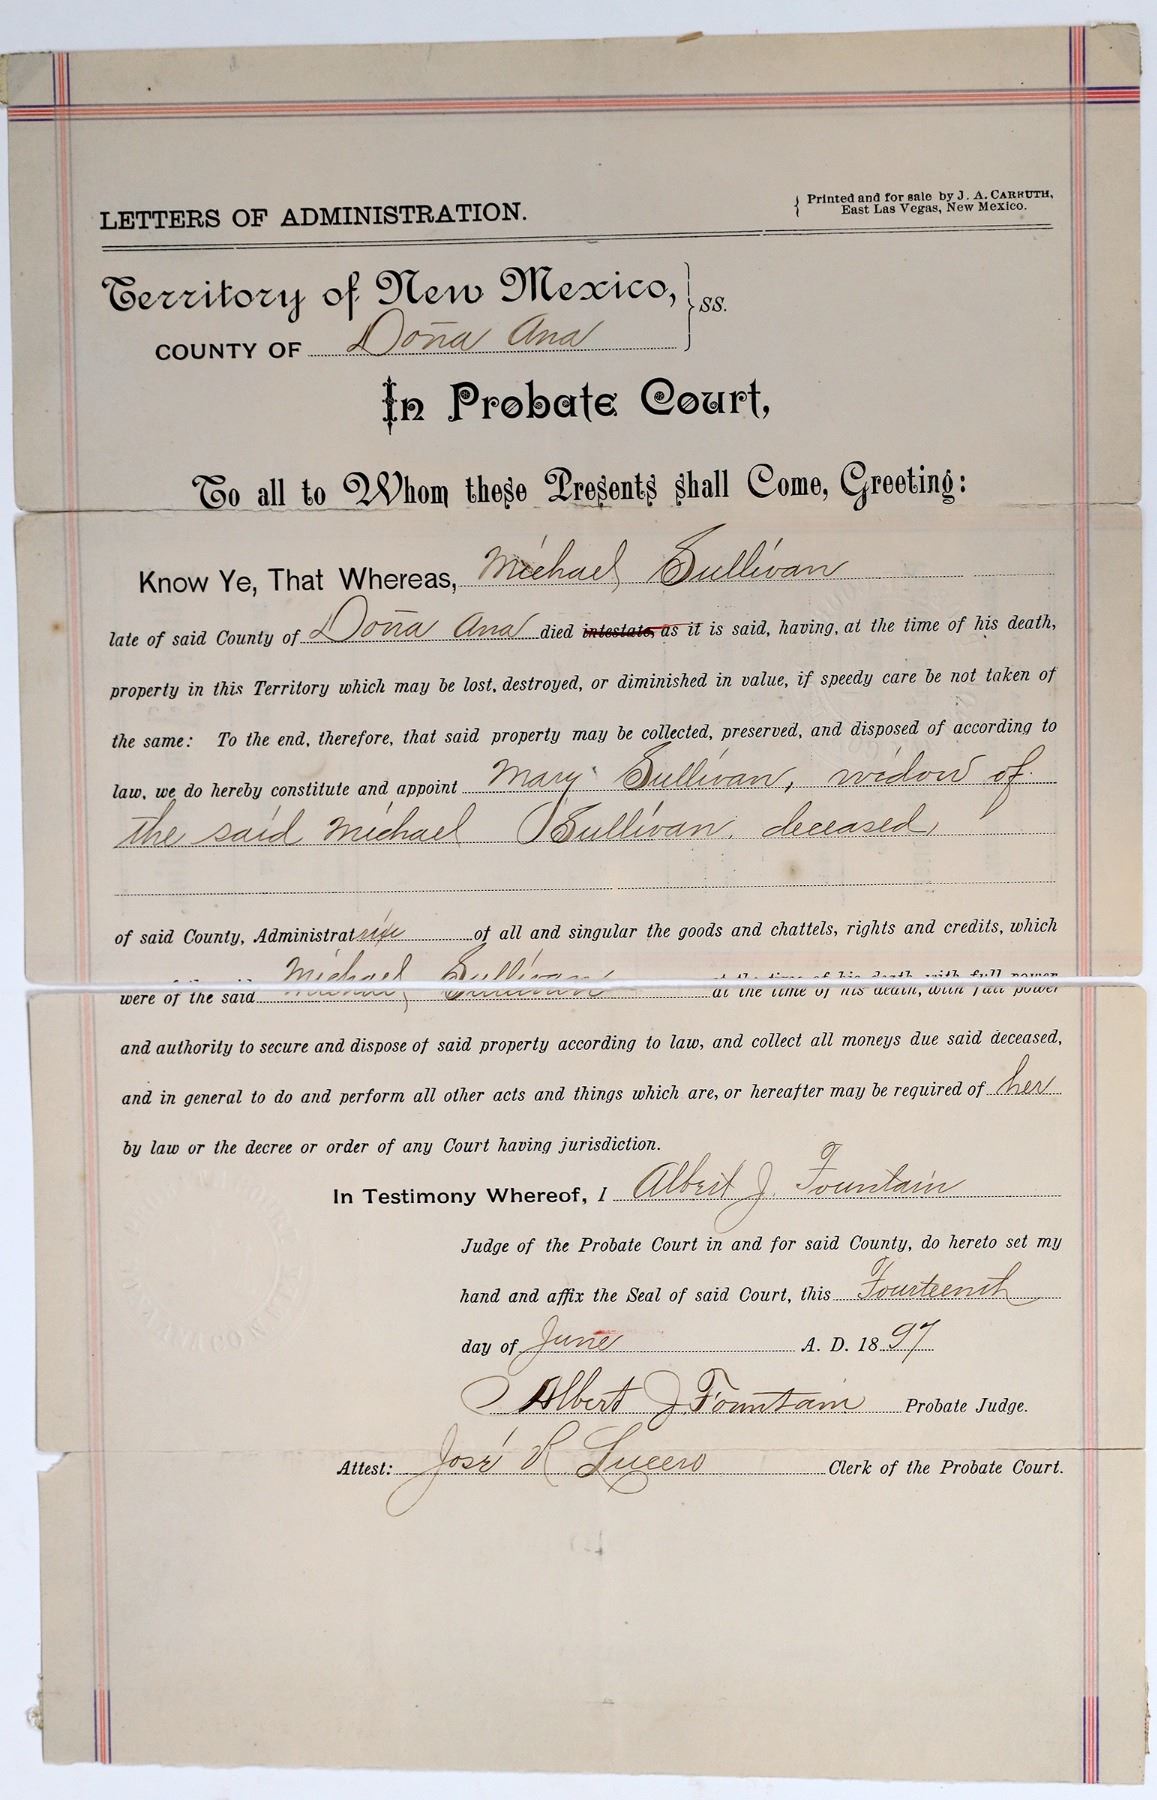 LETTERS OF ADMINISTRATION.
{ Printed and for sale by J. A. CARRUTH,
East Las Vegas, New Mexico.
Territory of New Mexico, } ss.
COUNTY OF Doña Ana
In Probate Court,
To all to Whom these Presents shall Come, Greeting:
Know Ye, That Whereas, Michael Sullivan
late of said County of Doña Ana died intestate, as it is said, having, at the time of his death,
property in this Territory which may be lost, destroyed, or diminished in value, if speedy care be not taken of
the same: To the end, therefore, that said property may be collected, preserved, and disposed of according to
law, we do hereby constitute and appoint Mary Sullivan, widow of
the said Michael Sullivan, deceased,
of said County, Administratrix of all and singular the goods and chattels, rights and credits, which
were of the said Michael Sullivan at the time of his death, with full power
and authority to secure and dispose of said property according to law, and collect all moneys due said deceased,
and in general to do and perform all other acts and things which are, or hereafter may be required of her
by law or the decree or order of any Court having jurisdiction.
In Testimony Whereof, I Albert J. Fountain
Judge of the Probate Court in and for said County, do hereto set my
hand and affix the Seal of said Court, this Fourteenth
day of June A. D. 1897
Albert J. Fountain Probate Judge.
Attest: José R Lucero Clerk of the Probate Court.